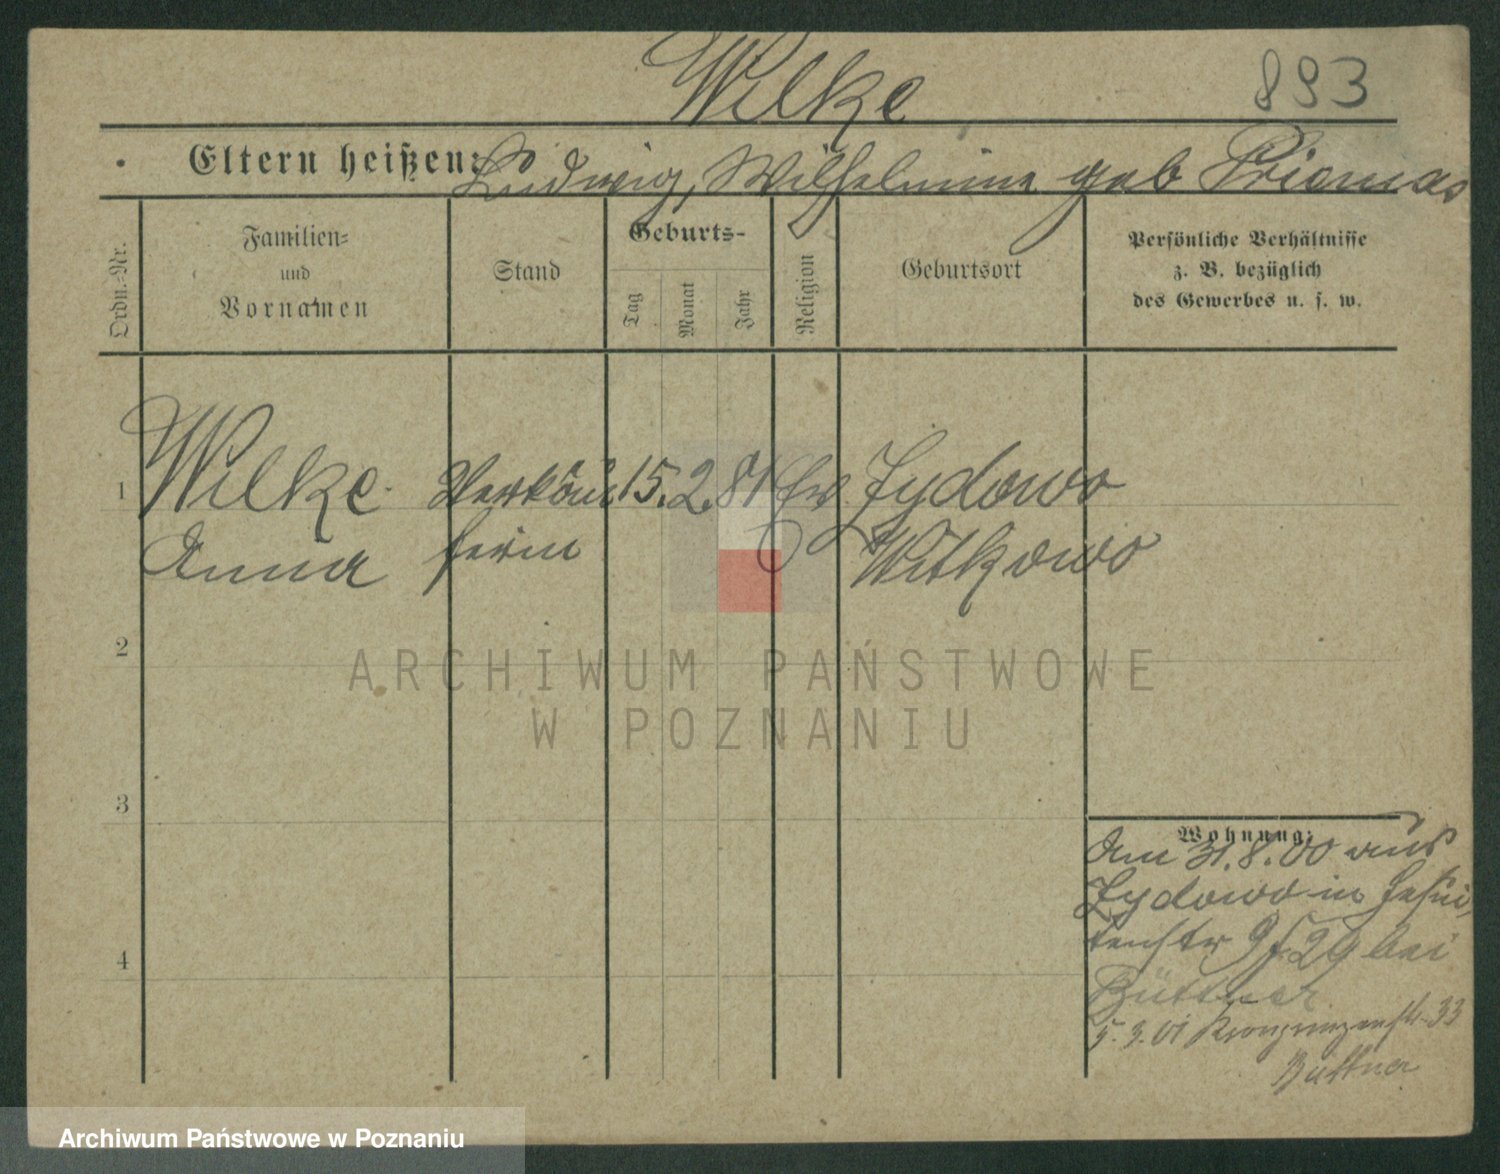 Wilke
893
Eltern heißen: Ludwig, Wilhelmine geb Priemas
Ordn.-Nr.
Familien-
und
Vornamen
Stand
Geburts-
Tag
Monat
Jahr
Religion
Geburtsort
Persönliche Verhältnisse
z. B. bezüglich
des Gewerbes u. s. w.
1
Wilke Verkäu 15. 2. 81 Ev Zydowo
Anna ferin Witkowo
2
ARCHIWUM PAŃSTWOWE
W POZNANIU
3
Wohnung:
Am 31.8.00 aus
Zydowo in Jesui
tenstr 9 bei
4
Büttner
5.3.01 Kronprinzenstr 33
Büttner
Archiwum Państwowe w Poznaniu